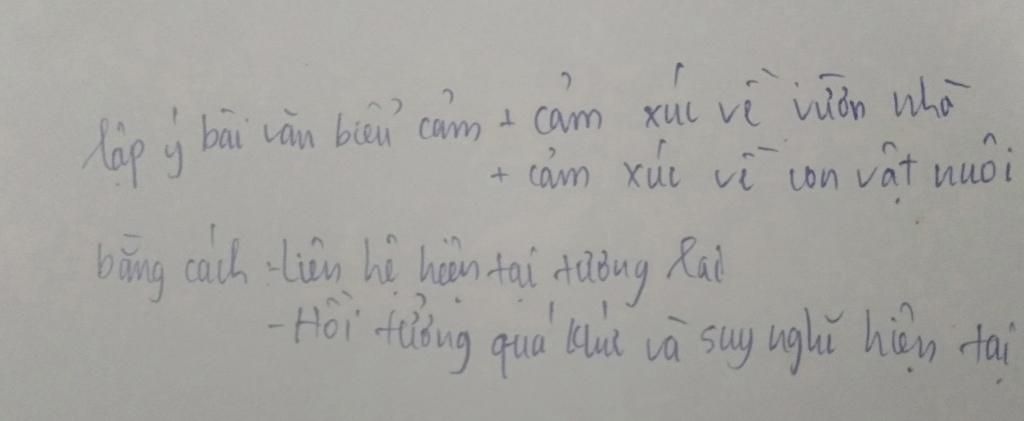 lập ý bài văn biểu cảm + cảm xúc về vườn nhà
+ cảm xúc về con vật nuôi
bằng cách - liên hệ hiện tại tương lai
- Hồi tưởng quá khứ và suy nghĩ hiện tại